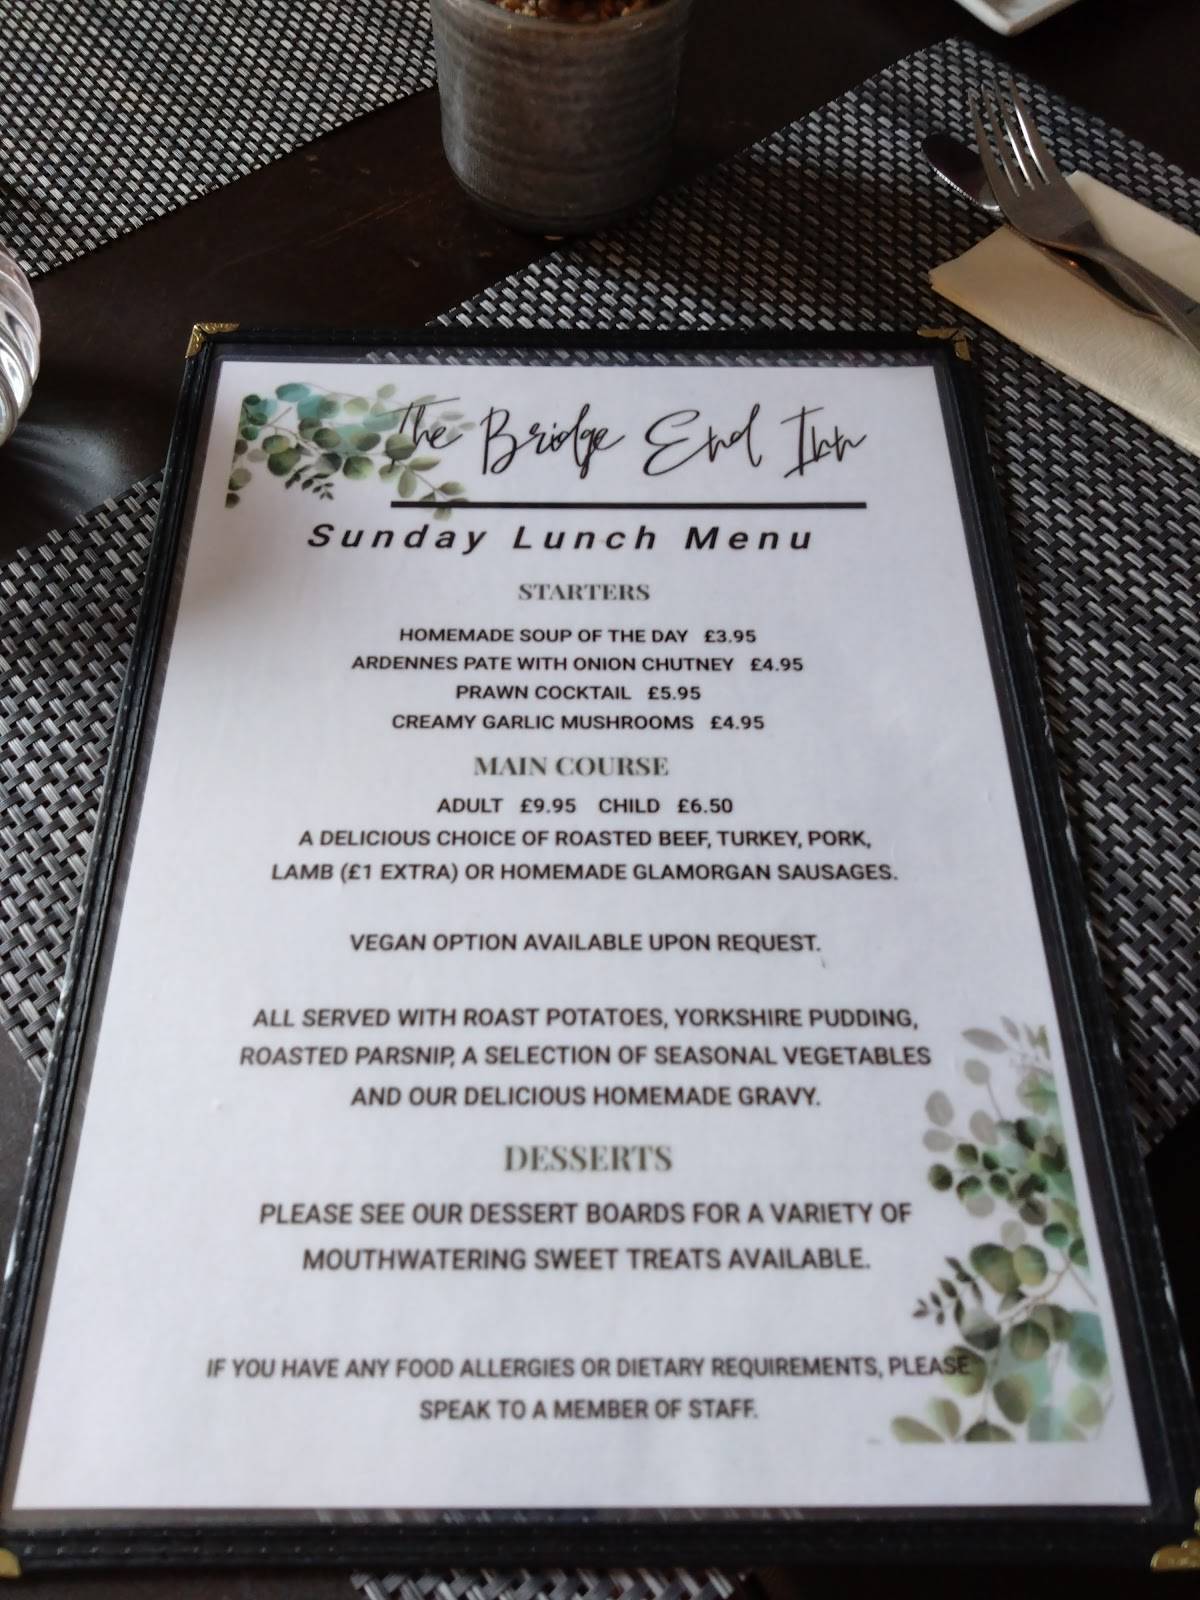 The Bridge End Inn
Sunday Lunch Menu
STARTERS
HOMEMADE SOUP OF THE DAY £3.95
ARDENNES PATE WITH ONION CHUTNEY £4.95
PRAWN COCKTAIL £5.95
CREAMY GARLIC MUSHROOMS £4.95
MAIN COURSE
ADULT £9.95 CHILD £6.50
A DELICIOUS CHOICE OF ROASTED BEEF, TURKEY, PORK,
LAMB (£1 EXTRA) OR HOMEMADE GLAMORGAN SAUSAGES.
VEGAN OPTION AVAILABLE UPON REQUEST.
ALL SERVED WITH ROAST POTATOES, YORKSHIRE PUDDING,
ROASTED PARSNIP, A SELECTION OF SEASONAL VEGETABLES
AND OUR DELICIOUS HOMEMADE GRAVY.
DESSERTS
PLEASE SEE OUR DESSERT BOARDS FOR A VARIETY OF
MOUTHWATERING SWEET TREATS AVAILABLE.
IF YOU HAVE ANY FOOD ALLERGIES OR DIETARY REQUIREMENTS, PLEASE
SPEAK TO A MEMBER OF STAFF.